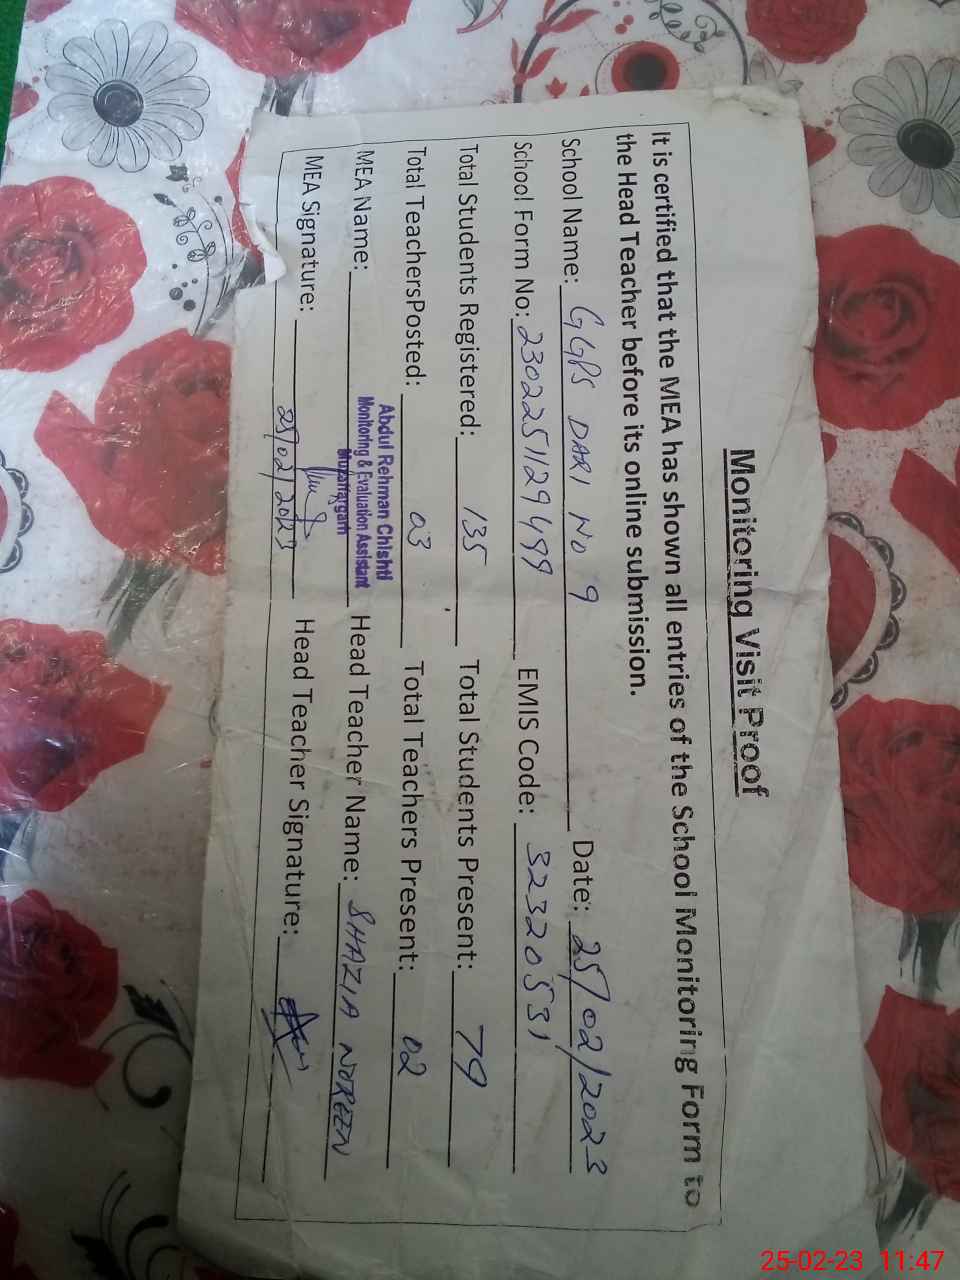 Monitoring Visit Proof
It is certified that the MEA has shown all entries of the School Monitoring Form to
the Head Teacher before its online submission.
School Name: GGPS DARI NO 9 Date: 25/02/2023
School Form No: 2302251129499 EMIS Code: 32320531
Total Students Registered: 135 Total Students Present: 79
Total TeachersPosted: 03 Total Teachers Present: 02
Abdul Rehman Chishti
MEA Name: Monitoring & Evaluation Assistant Head Teacher Name: SHAZIA NOREEN
Muzaffargarh
MEA Signature: Head Teacher Signature:
25/02/2023
25-02-23 11:47